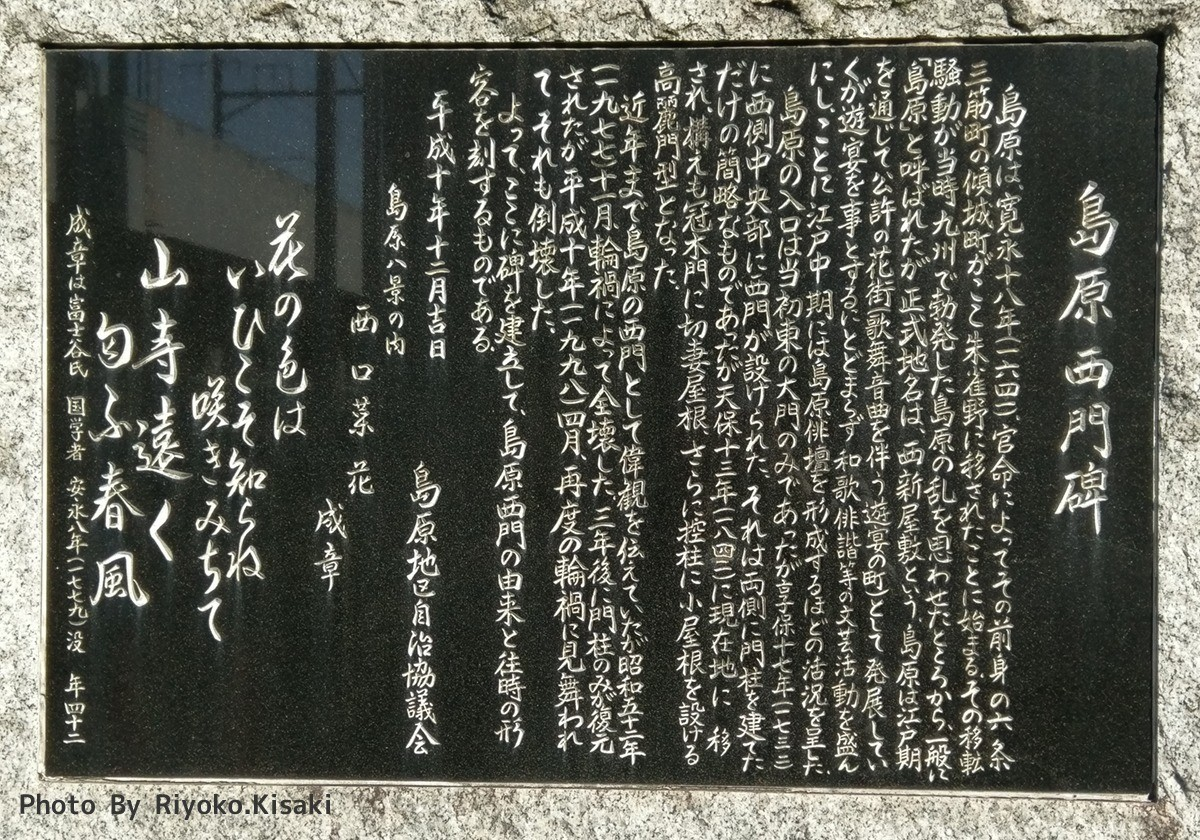 島原西門碑
島原は、寛永十八年(一六四一)、官命によってその前身の六条
三筋町の傾城町がここ朱雀野に移されたことに始まる。その移転
騒動が当時、九州で勃発した島原の乱を思わせたところから、一般に
「島原」と呼ばれたが、正式地名は、西新屋敷という。島原は江戸期
を通じて、公許の花街(歌舞音曲を伴う遊宴の町)として発展してい
くが、遊宴を事とするにとどまらず、和歌俳諧等の文芸活動を盛ん
にし、ことに江戸中期には島原俳壇を形成するほどの活況を呈した。
島原の入口は当初東の大門のみであったが、享保十七年(一七三二)
に西側中央部に西門が設けられた。それは両側に門柱を建てた
だけの簡略なものであったが、天保十三年(一八四二)に現在地に移
され、構えも冠木門に切妻屋根、さらに控柱に小屋根を設ける
高麗門型となった。
近年まで島原の西門として偉観を伝えていたが、昭和五十二年
(一九七七)十一月、輪禍によって全壊した。三年後に門柱のみが復元
されたが、平成十年(一九九八)四月、再度の輪禍に見舞われ
て、それも倒壊した。
よって、ここに碑を建立して、島原西門の由来と往時の形
容を刻するものである。
平成十年十二月吉日
島原地区自治協議会
島原八景の内
西口菜花
成章
花の色は
いひこそ知らね
咲きみちて
山寺遠く
匂ふ春風
成章は富士谷氏 国学者 安永八年(一七七九)没 年四十二
Photo By Riyoko.Kisaki